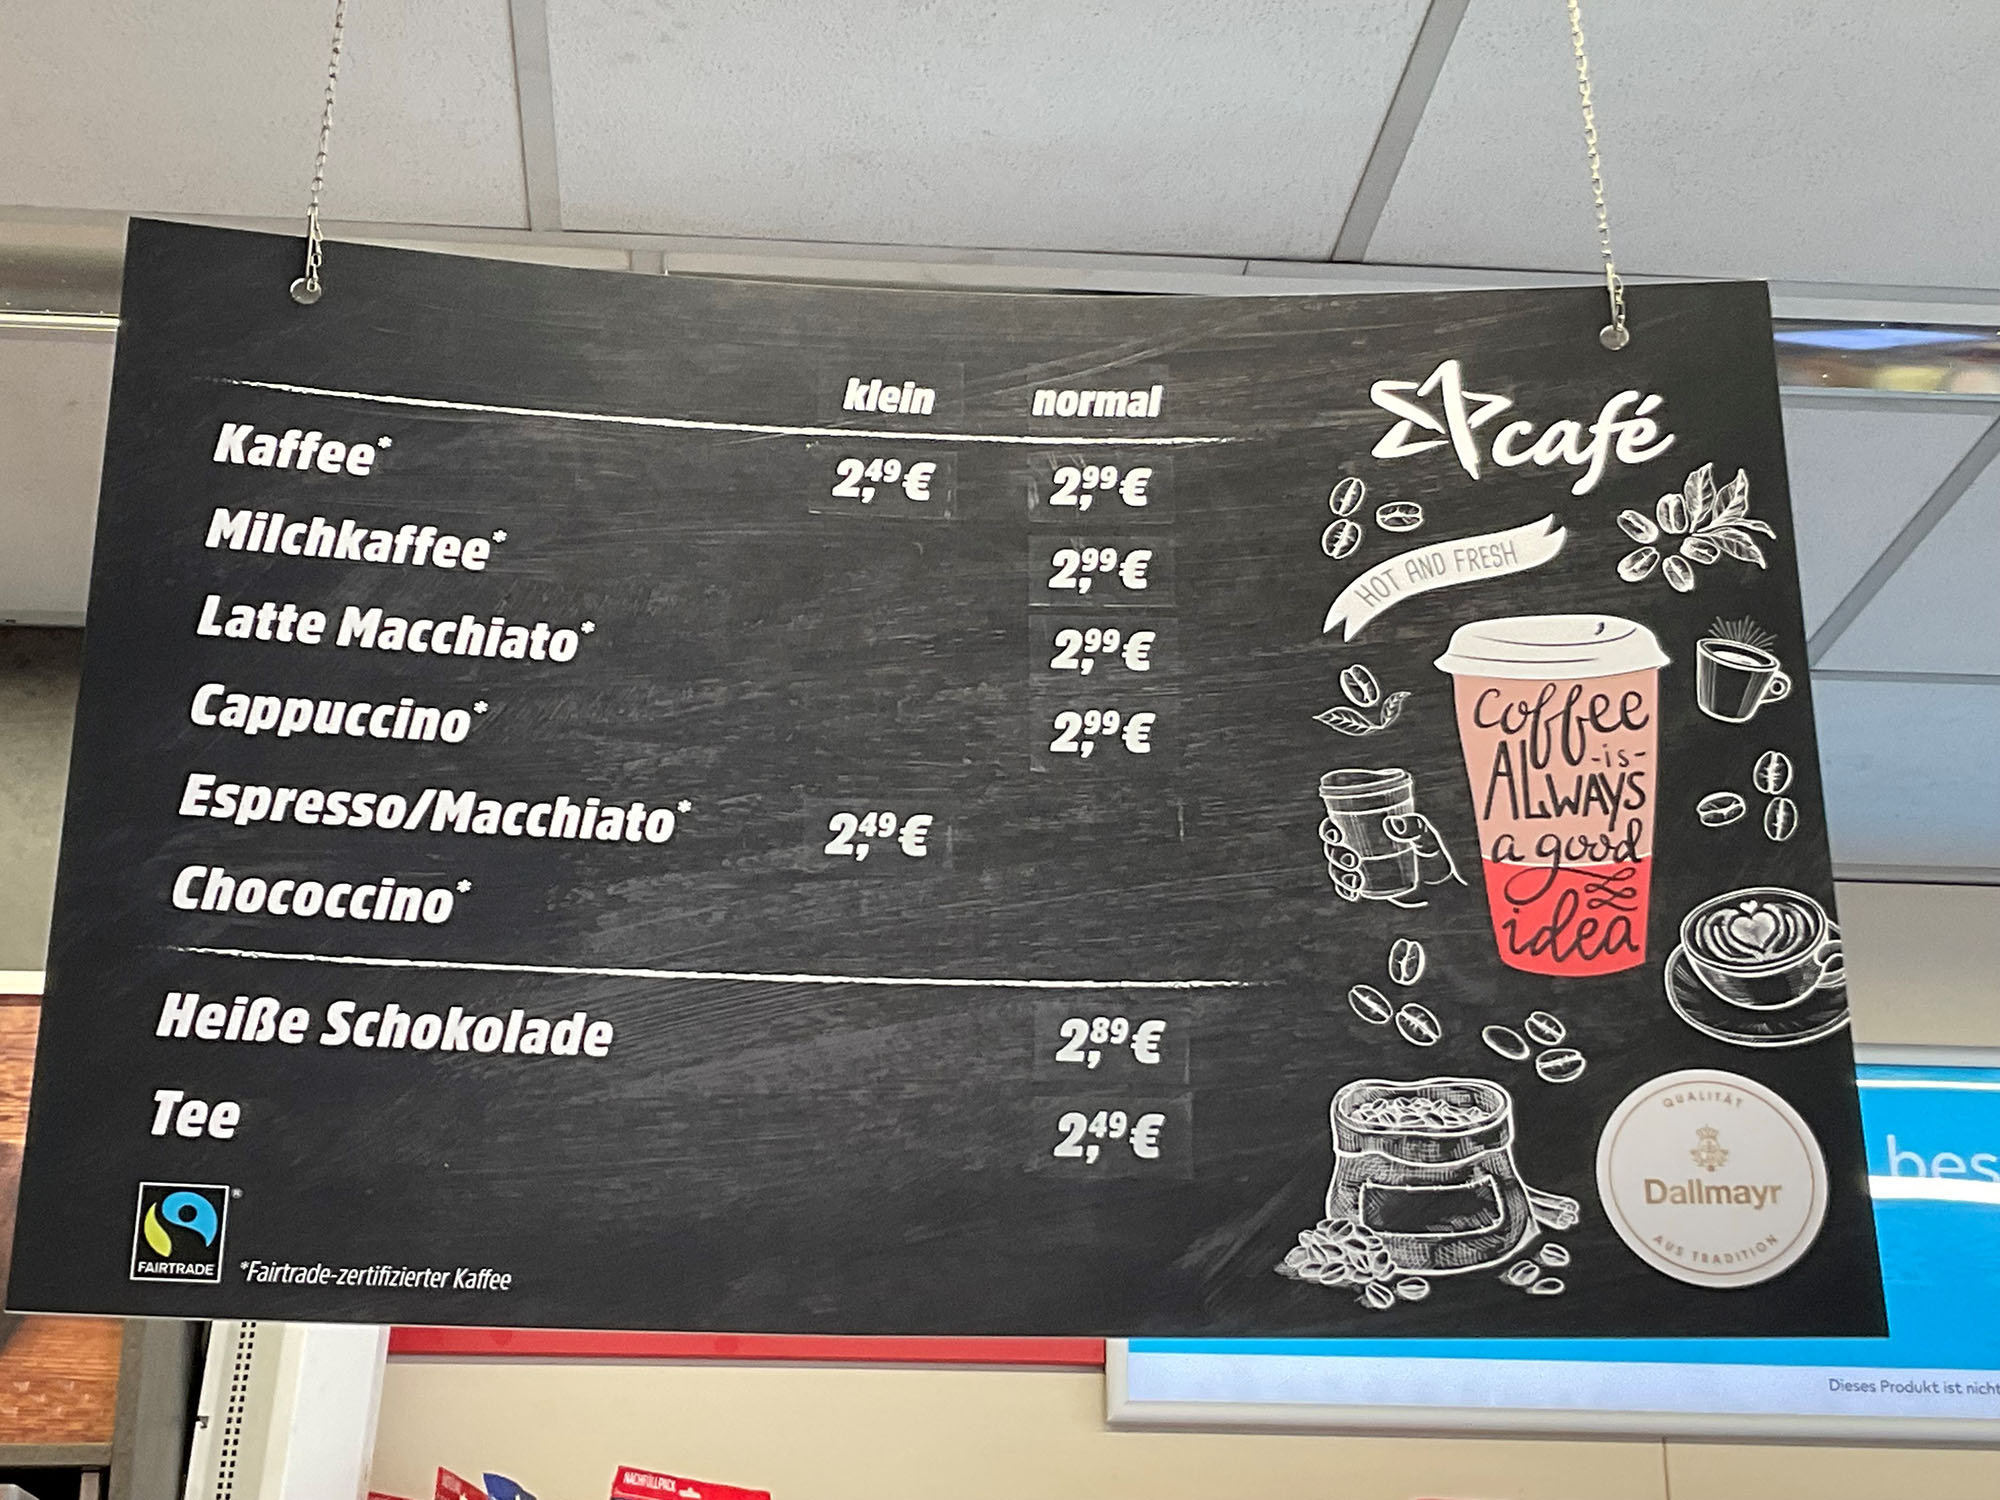 klein normal
Kaffee* 2,49 € 2,99 €
Milchkaffee* 2,99 €
Latte Macchiato* 2,99 €
Cappuccino* 2,99 €
Espresso/Macchiato* 2,49 €
Chococcino*
Heiße Schokolade 2,89 €
Tee 2,49 €
FAIRTRADE ®
*Fairtrade-zertifizierter Kaffee
café
HOT AND FRESH
coffee
-is-
ALWAYS
a good
idea
QUALITÄT
Dallmayr
AUS TRADITION
bes
Dieses Produkt ist nicht
NACHFÜLLPACK